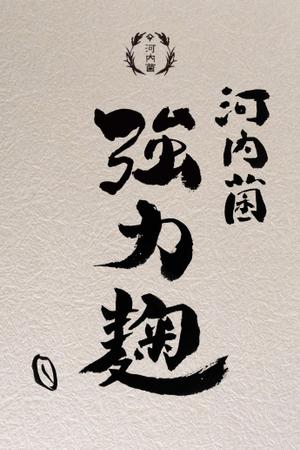 河内菌
河内菌
強力麹